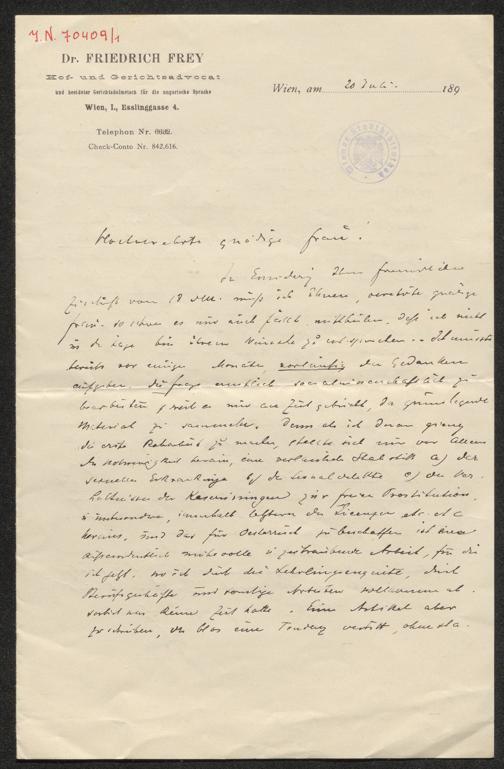 J.N. 70409/1
Dr. FRIEDRICH FREY
Hof- und Gerichtsadvocat
und beeideter Gerichtsdolmetsch für die ungarische Sprache
Wien, I., Esslinggasse 4.
Telephon Nr.
Check-Conto Nr. 842.616.
Wien, am 20 Juli 189
Wiener Stadtbibliothek
Hochverehrte gnädige Frau!
In Ihrer freundlichen
Zuschrift vom 18 muß ich Ihnen, verehrte gnädige
Frau, so schwer es mir auch fällt mittheilen, daß ich nicht
in der Lage bin Ihrem Wunsche zu entsprechen. Ich mußte
bereits vor einigen Monaten vorläufig den Gedanken
aufgeben, die Frage socialwissenschaftlich zu
bearbeiten, weil es mir an Zeit gebricht, das grundlegende
Material zu sammeln. Denn als ich daran gieng
die erste zu machen, stellte sich mir vor Allem
die Nothwendigkeit heraus, eine verlässliche Statistik a) der
sexuellen Erkrankungen b) der Sexualdelikte c) des Ver-
hältnisses der Kasernirungen zur freien Prostitution,
insbesondere, innerhalb letzterer der Licenzen etc. etc
heraus, und das für Oesterreich zu beschaffen ist eine
außerordentlich mühevolle u zeitraubende Arbeit, für die
ich jetzt, wo ich durch die durch
Berufsgeschäfte und sonstige Arbeiten vollkommen ab-
sorbirt bin keine Zeit habe. Einen Artikel aber
zu schreiben, der blos eine Tendenz vertritt, ohne da-